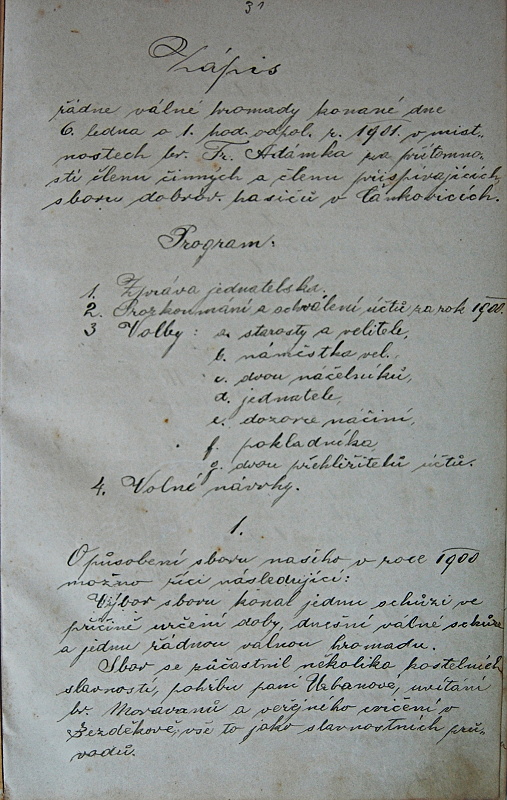 31
Zápis
řádné valné hromady konané dne
6. ledna o 1. hod. odpol. r. 1901. v míst-
nostech br. Fr. Adámka za přítomno-
sti členu činných a členu přispívajících
sboru dobrov. hasičů v Čankovicích.
Program:
1. Zpráva jednatelská.
2. Prozkoumání a schválení účtů za rok 1900.
3 Volby: a. starosty a velitele,
b. náměstka vel.,
c. dvou náčelníků,
d. jednatele,
e. dozorce náčiní,
f. pokladníka
g. dvou přehlížitelů účtů.
4. Volné návrhy.
1.
O působení sboru našeho v roce 1900
možno říci následující:
Výbor sboru konal jednu schůzi ve
příčině určení doby, dnešní valné schůze
a jednu řádnou valnou hromadu.
Sbor se zúčastnil několika kostelních
slavností, pohřbu paní Urbanové, uvítání
br. Moravanů a veřejného cvičení v
Bezděkově, vše to jako slavnostních prů-
vodů.